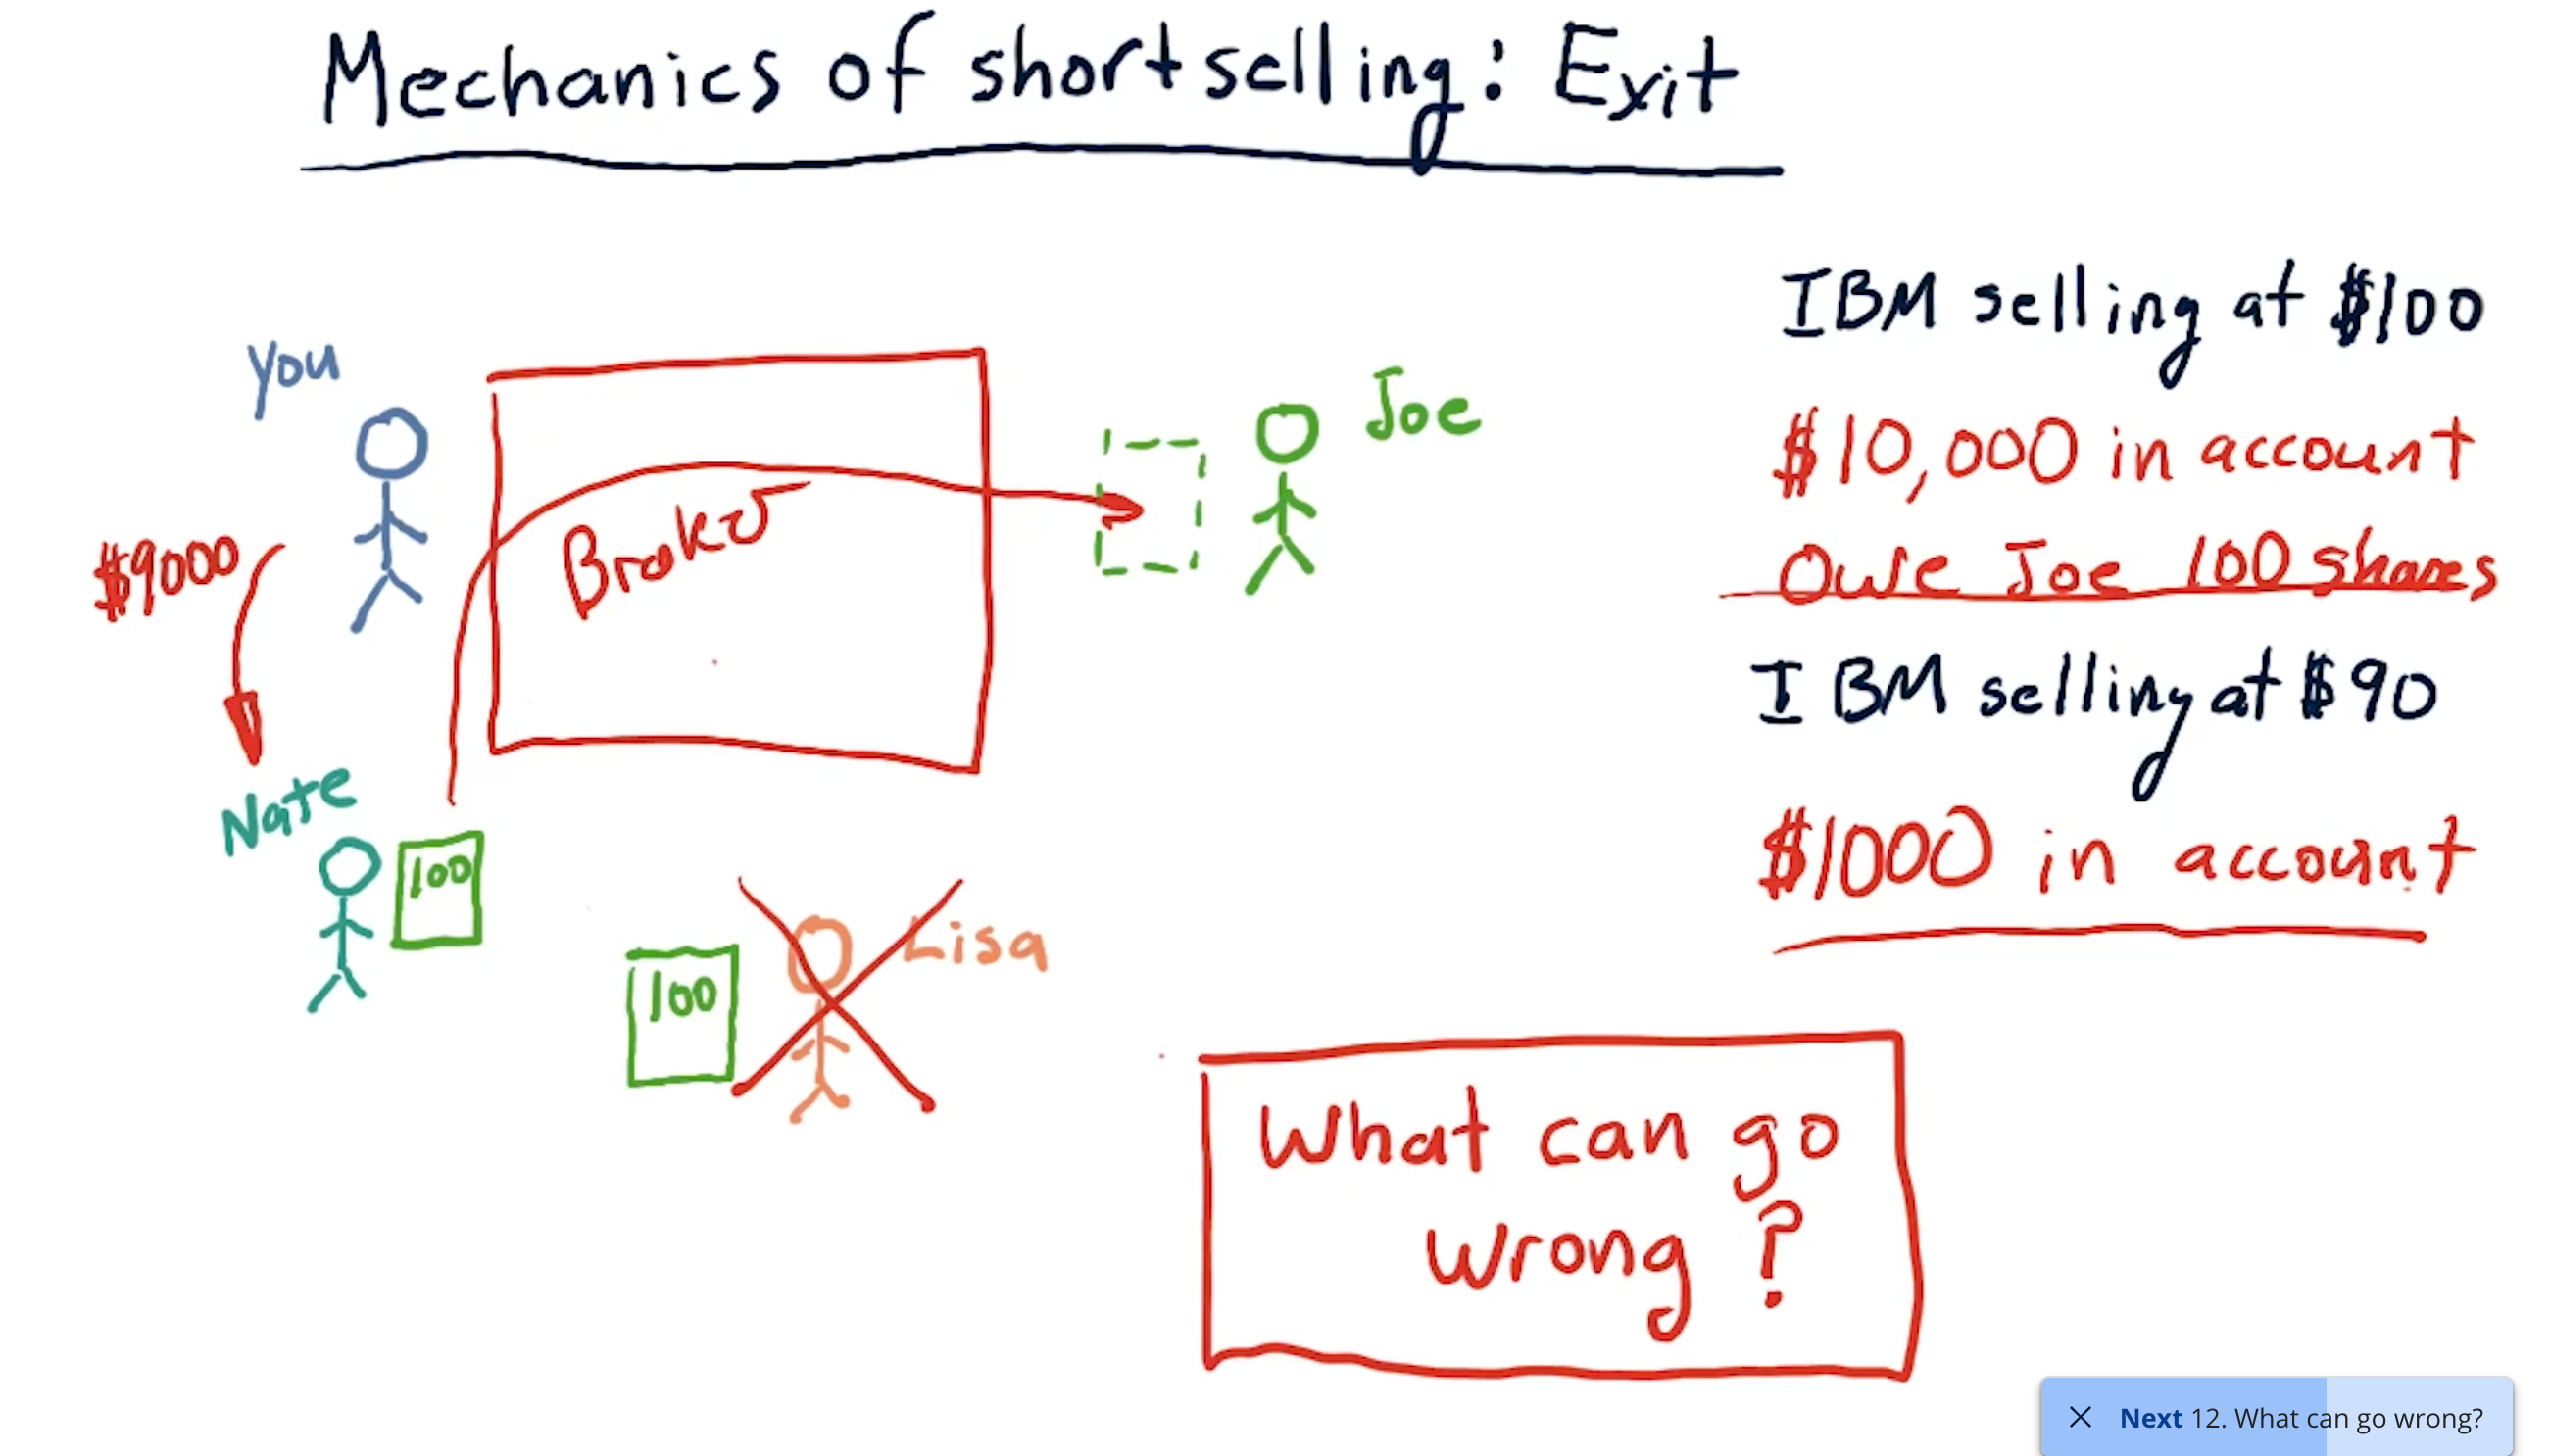 Mechanics of shortselling: Exit
you
Joe
Broker
$9000
Nate
100
100
Lisa
IBM selling at $100
$10,000 in account
Owe Joe 100 shares
IBM selling at $90
$1000 in account
What can go
wrong?
Next 12. What can go wrong?